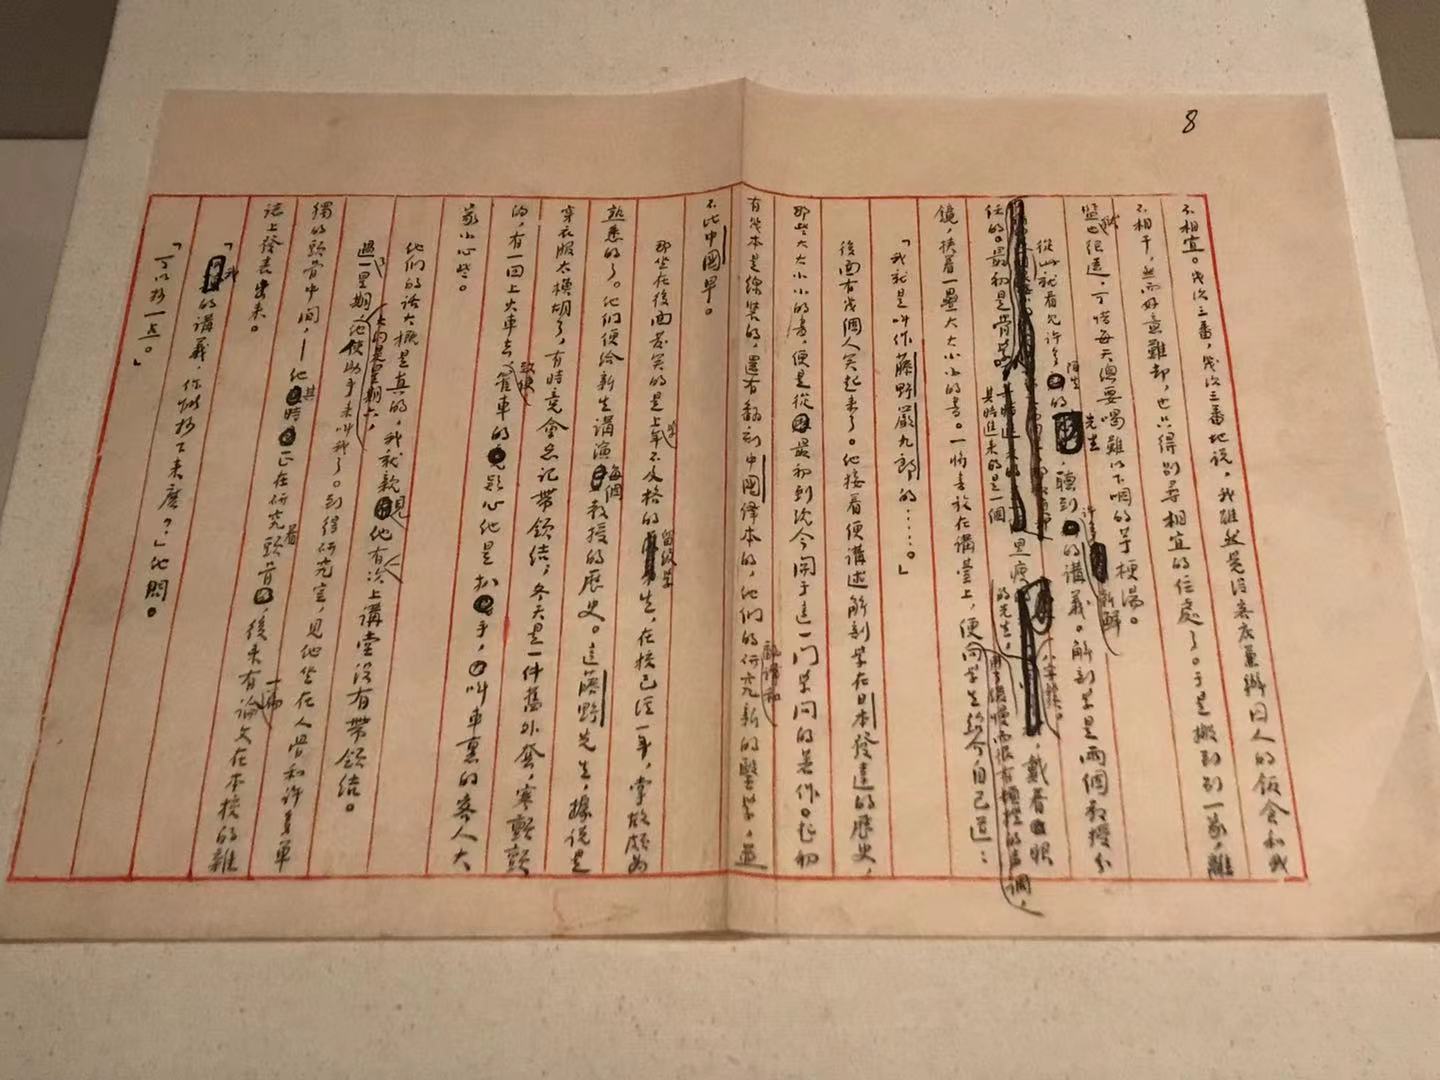 8
不相宜。幾次三番,幾次三番地說。我雖然覺得客店兼辦囚人的飯食和我
不相干,然而好意難却,也只得別尋相宜的住處了。于是搬到別一家,離
監獄也很遠,可惜每天總要喝難以下咽的芋梗湯。
從此就看見許多陌生的先生,聽到許多新鮮的講義。解剖學是兩個教授分
任的。最初是骨學。其時進來的是一個黑瘦的先生,八字鬚,戴着眼
鏡,挾着一疊大大小小的書。一將書放在講臺上,便用了緩慢而很有頓挫的聲調,向學生紹介自己道:
「我就是叫作藤野嚴九郎的……。」
後面有幾個人笑起來了。他接着便講述解剖學在日本發達的歷史,
那些大大小小的書,便是從最初到現今關于這一門學問的著作。起初
有幾本是線裝的;還有翻刻中國譯本的,他們的翻譯和研究新的醫學,並
不比中國早。
那坐在後面發笑的是上學年不及格的留級學生,在校已經一年,掌故頗為
熟悉的了。他們便給新生講演每個教授的歷史。這藤野先生,據說是
穿衣服太模胡了,有時竟會忘記帶領結;冬天是一件舊外套,寒顫顫
的,有一回上火車去,致使管車的疑心他是扒手,叫車裏的客人大
家小心些。
他們的話大概是真的,我就親見他有一次上講堂沒有帶領結。
過了一星期,大約是星期六,他使助手來叫我了。到得研究室,見他坐在人骨和許多單
獨的頭骨中間,——他其時正在研究着頭骨,後來有一篇論文在本校的雜
誌上發表出來。
「我的講義,你能抄下來麽?」他問。
「可以抄一点。」